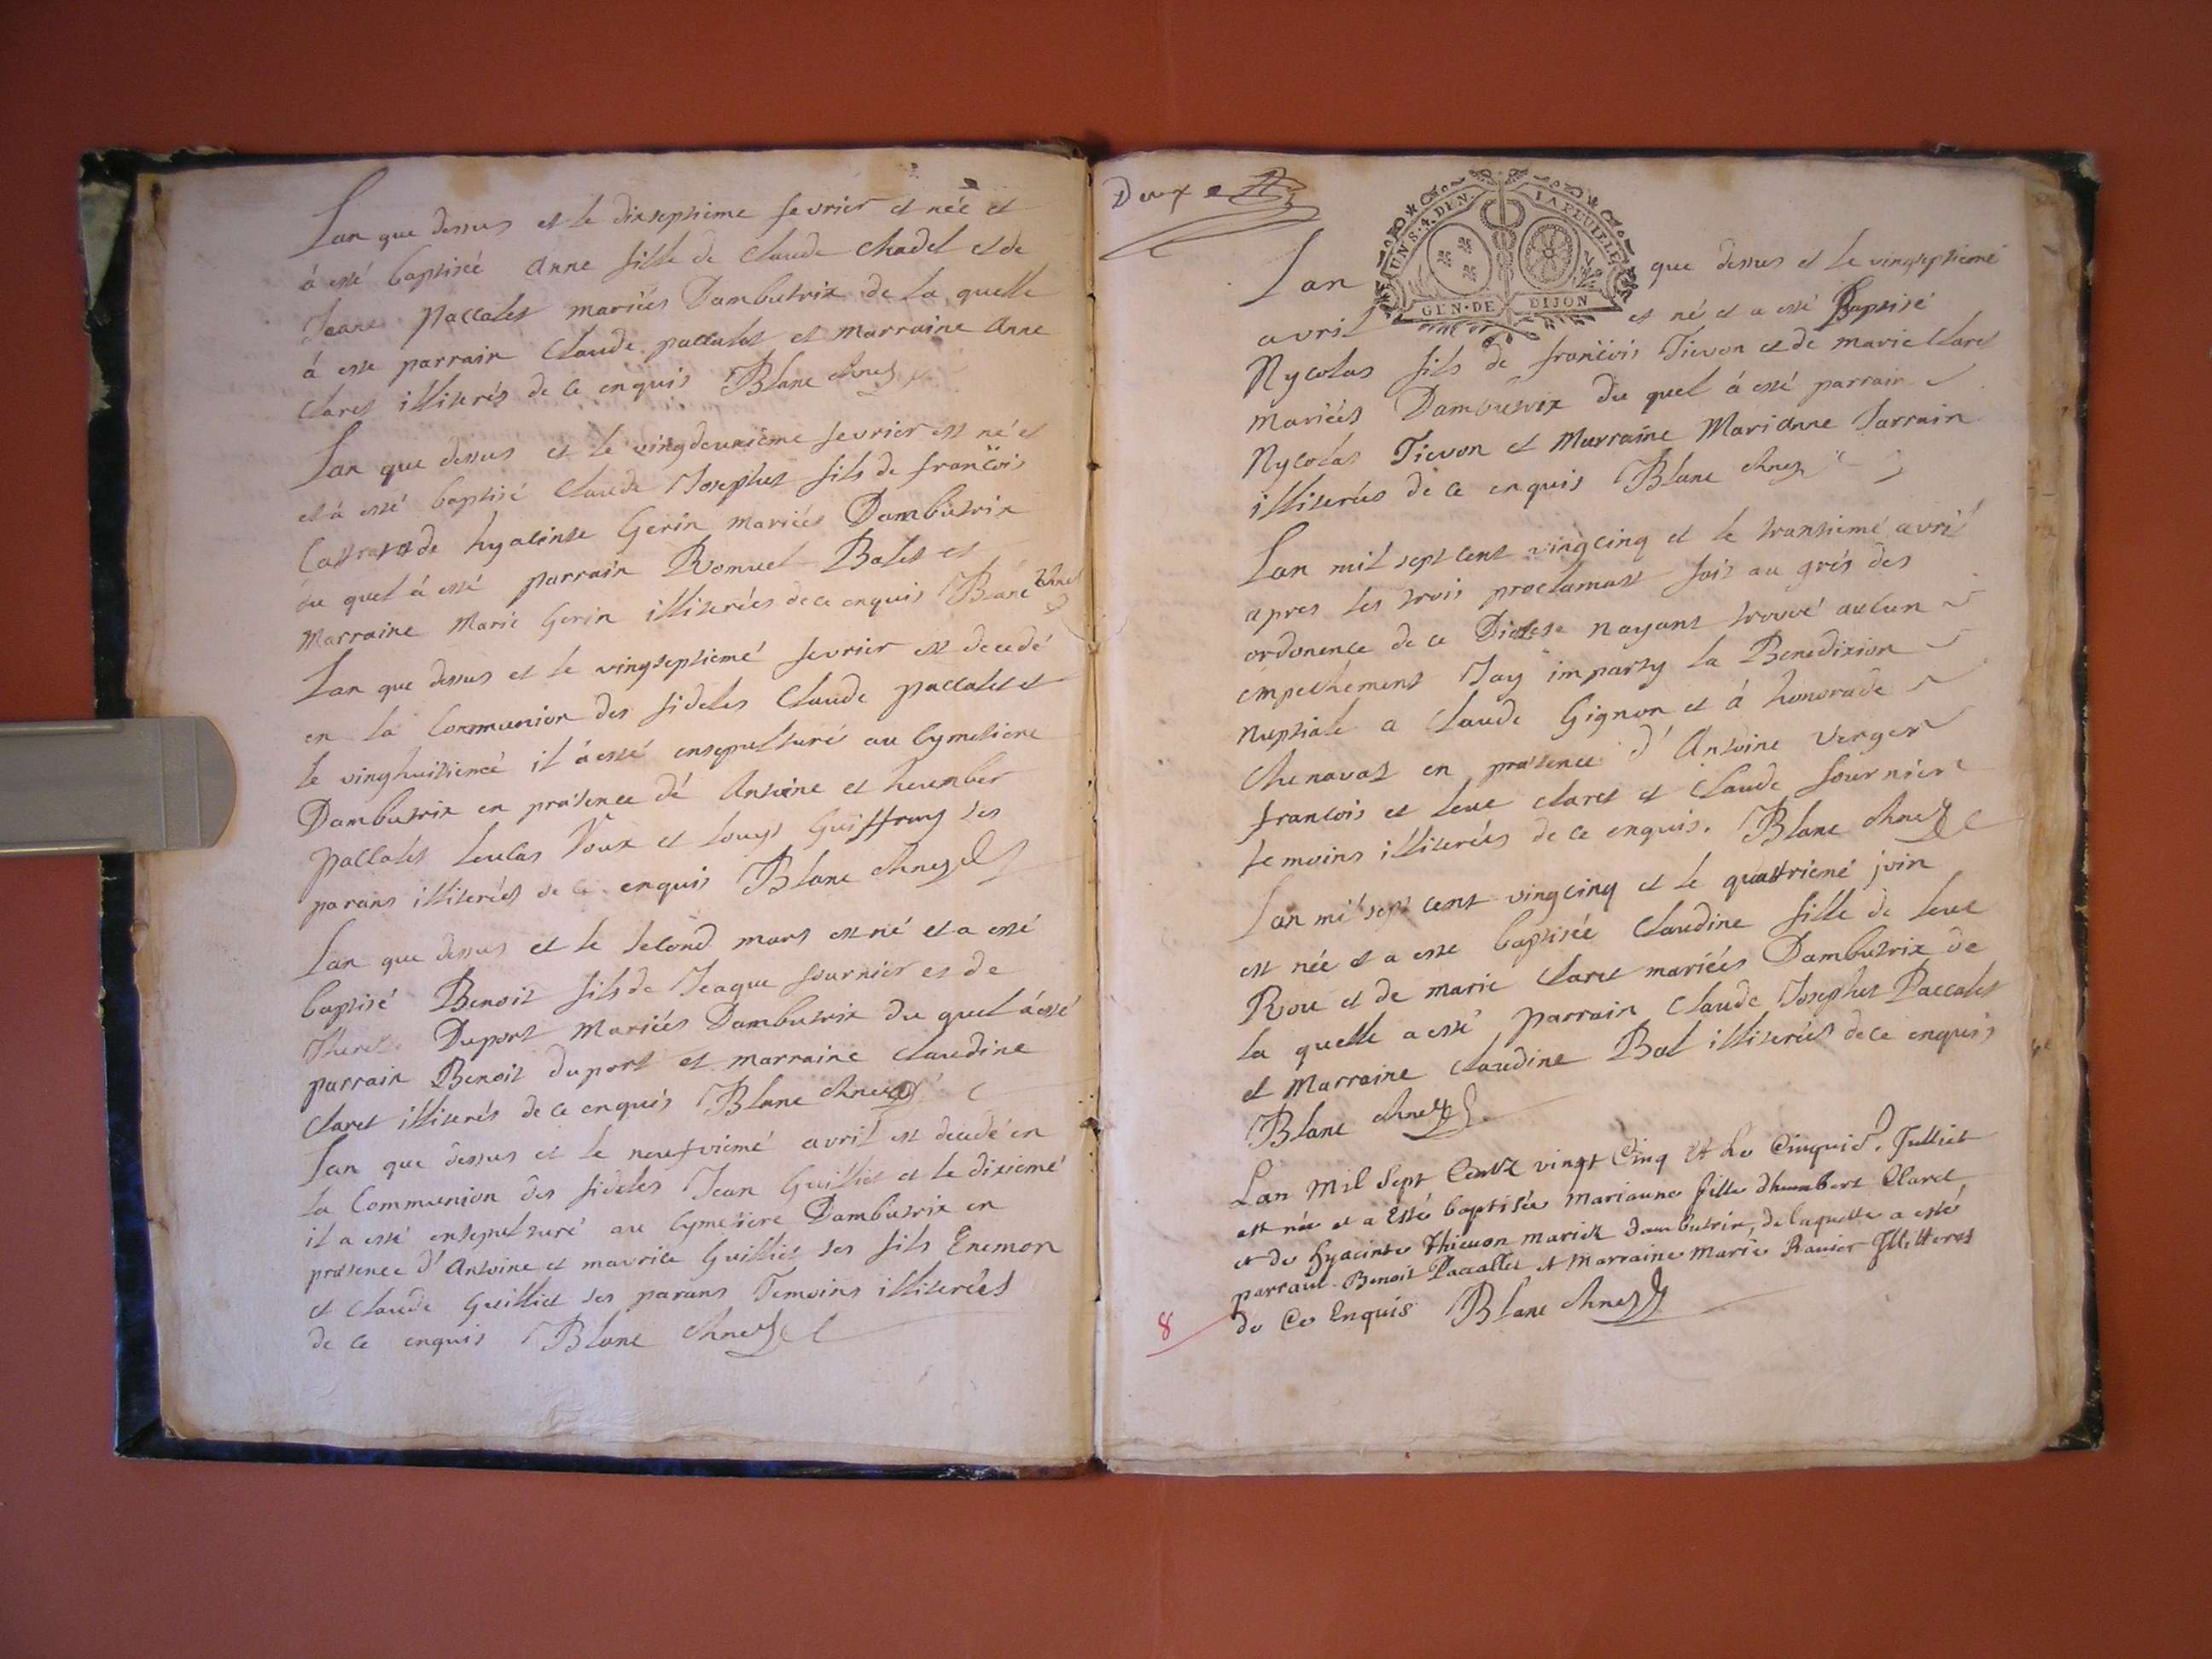 Lan que dessus et le dixseptieme fevrier et née et
á esté baptisée Anne fille de Claude Chadel et de
Jeane paccalet mariées Dambutrix de la quelle
á este parrain Claude paccalet et marraine Anne
Claret illiterés de ce enquis Blanc
Lan que dessus et le vingdeuxieme fevrier est né et
et á esté baptisé Claude Josephet fils de francois
et de hyacinte Gerin mariées Dambutrix
du quel á esté parrain Romuel Balet et
Marraine Marie Gerin illiterées de ce enquis Blanc
Lan que dessus et le vingseptiemé fevrier est decedé
en la Communion des fideles Claude paccalet et
le vinghuitiemé il á esté ensepulturé au Cymetiere
Dambutrix en présence dé Antoine et heumber
paccalet Roux et Louys Guiffray ses
parans illiterées de ce enquis Blanc
Lan que dessus et le second mars est né et a esté
baptisé Benoit fils de Jeaque fournier et de
Duport mariées Dambutrix du quel á esté
parrain Benoit duport et marraine Claudine
Claret illiterés de ce enquis Blanc
Lan que dessus et le neufviemé avril est decedé en
la Communion des fideles Jean Guilliet et le dixiemé
il a esté ensepulturé au Cymetiere Dambutrix en
présence d'Antoine et maurice Guilliet ses fils Enemon
et Claude Guilliet ses parans Temoins illiterées
de ce enquis Blanc
Deux
UN S. 4. DEN. LA FEUILLE
GEN. DE DIJON
Lan que dessus et le vingseptiemé
avril est né et a esté Baptisé
Nycolas fils de francöis Tievon et de marie Claret
mariées Dambutrix du quel á esté parrain
Nycolas Tievon et Marraine Marianne Jarrain
illiterées de ce enquis Blanc
Lan mil sept cent vingcinq et le trantiemé avril
apres les trois proclamast fait au grés des
ordonence de ce Diosese nayant trouvé aucun
empechement Jay imparty la Benedixion
nuptiale a Claude Gignon et á honorade
Chenavat en présence d'Antoine Verger
francois et Claret et Claude fournier
temoins illiterées de ce enquis. Blanc
Lan mil sept cent vingcinq et le quattriemé juin
est née et a este baptisée Claudine fille de
Riou et de marie Claret mariées Dambutrix de
la quelle a esté parrain Claude Josephet Paccalet
et Marraine Claudine Bal illiterées de ce enquis
Blanc
Lan Mil Sept Cent vingt Cinq Et Le Juilliet
est née et a Esté baptisée Marianne fille dhumbert Claret
et de hyacinte Thievon mariez dambutrix, de laquelle a esté
parrain Benoit Paccallet et Marraine Marie Ravier Illitteres
de Ce Enquis Blanc
8